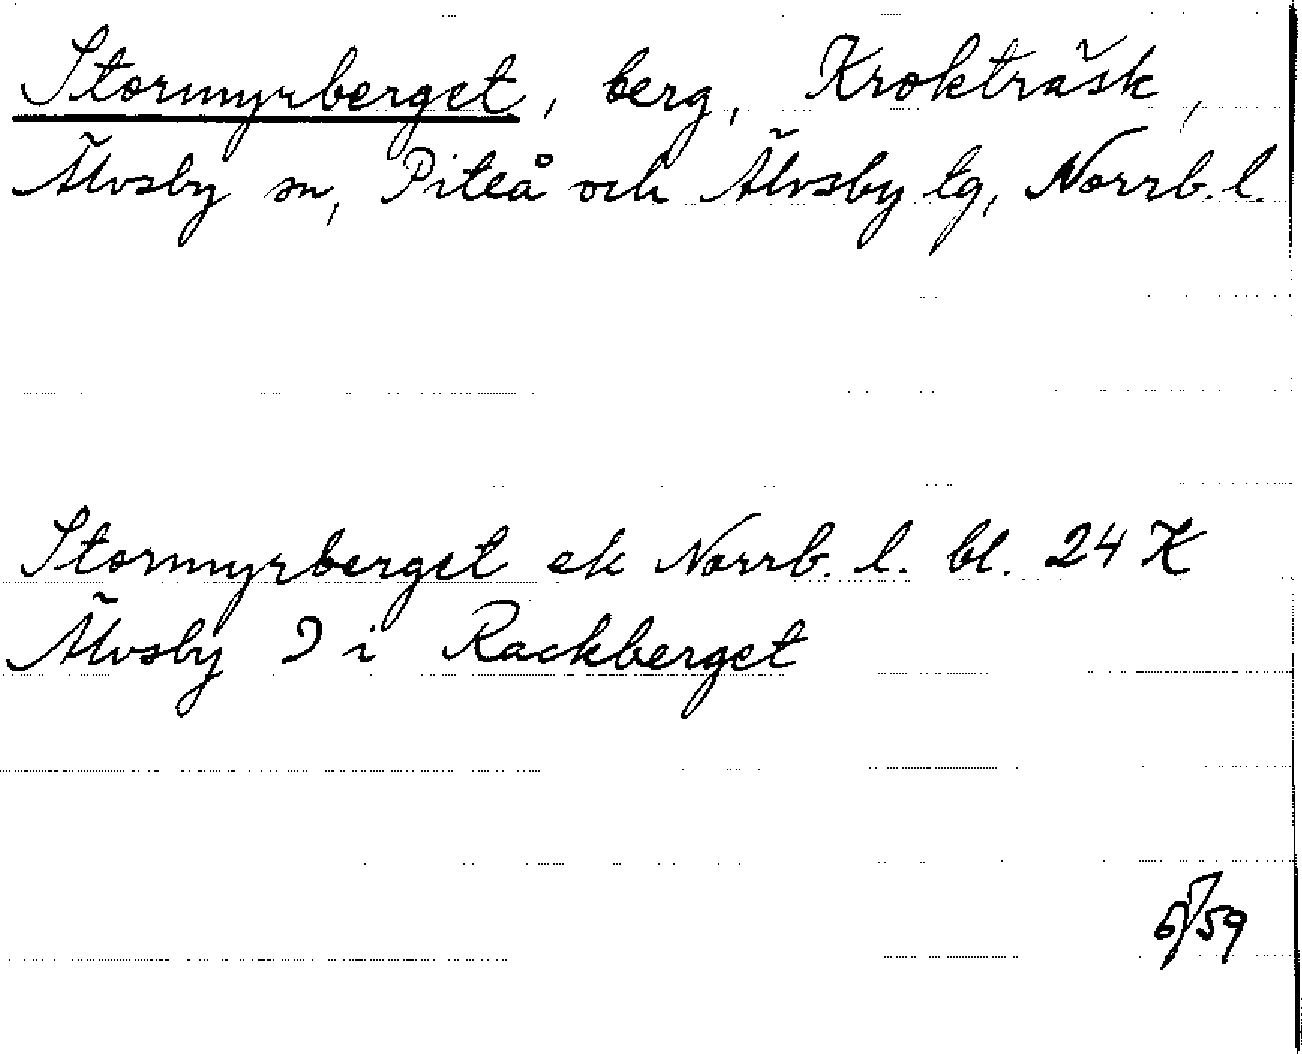 Stormyrberget, berg, Krokträsk,
Älvsby sn, Piteå och Älvsby tg, Norrb. l.
Stormyrberget ek Norrb. l. bl. 24 K
Älvsby I i Rackberget